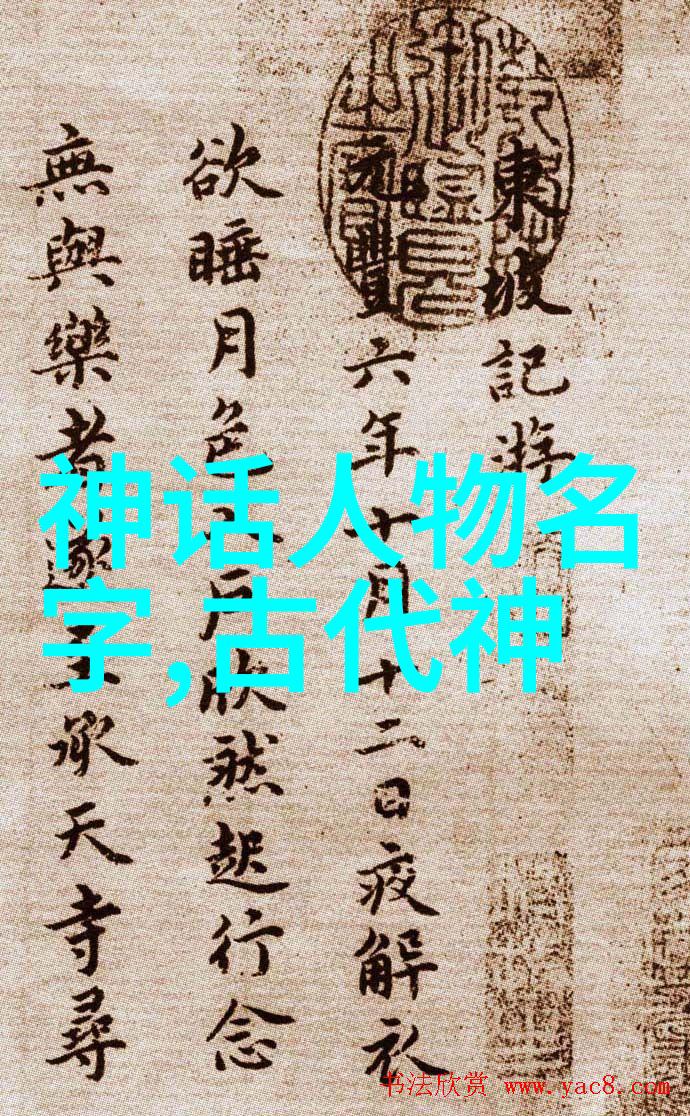 東坡記游
元豐六年十月十二日夜解衣
欲睡月色入戶欣然起行念
無與樂者遂至承天寺尋
神话人物名
字,古代神
书法欣赏 www.yac8.com